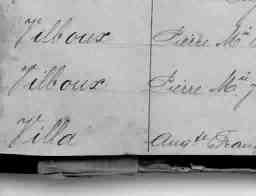 Vilboux Pierre M.ie
Vilboux Pierre M.ie
Villa Aug.te Fran